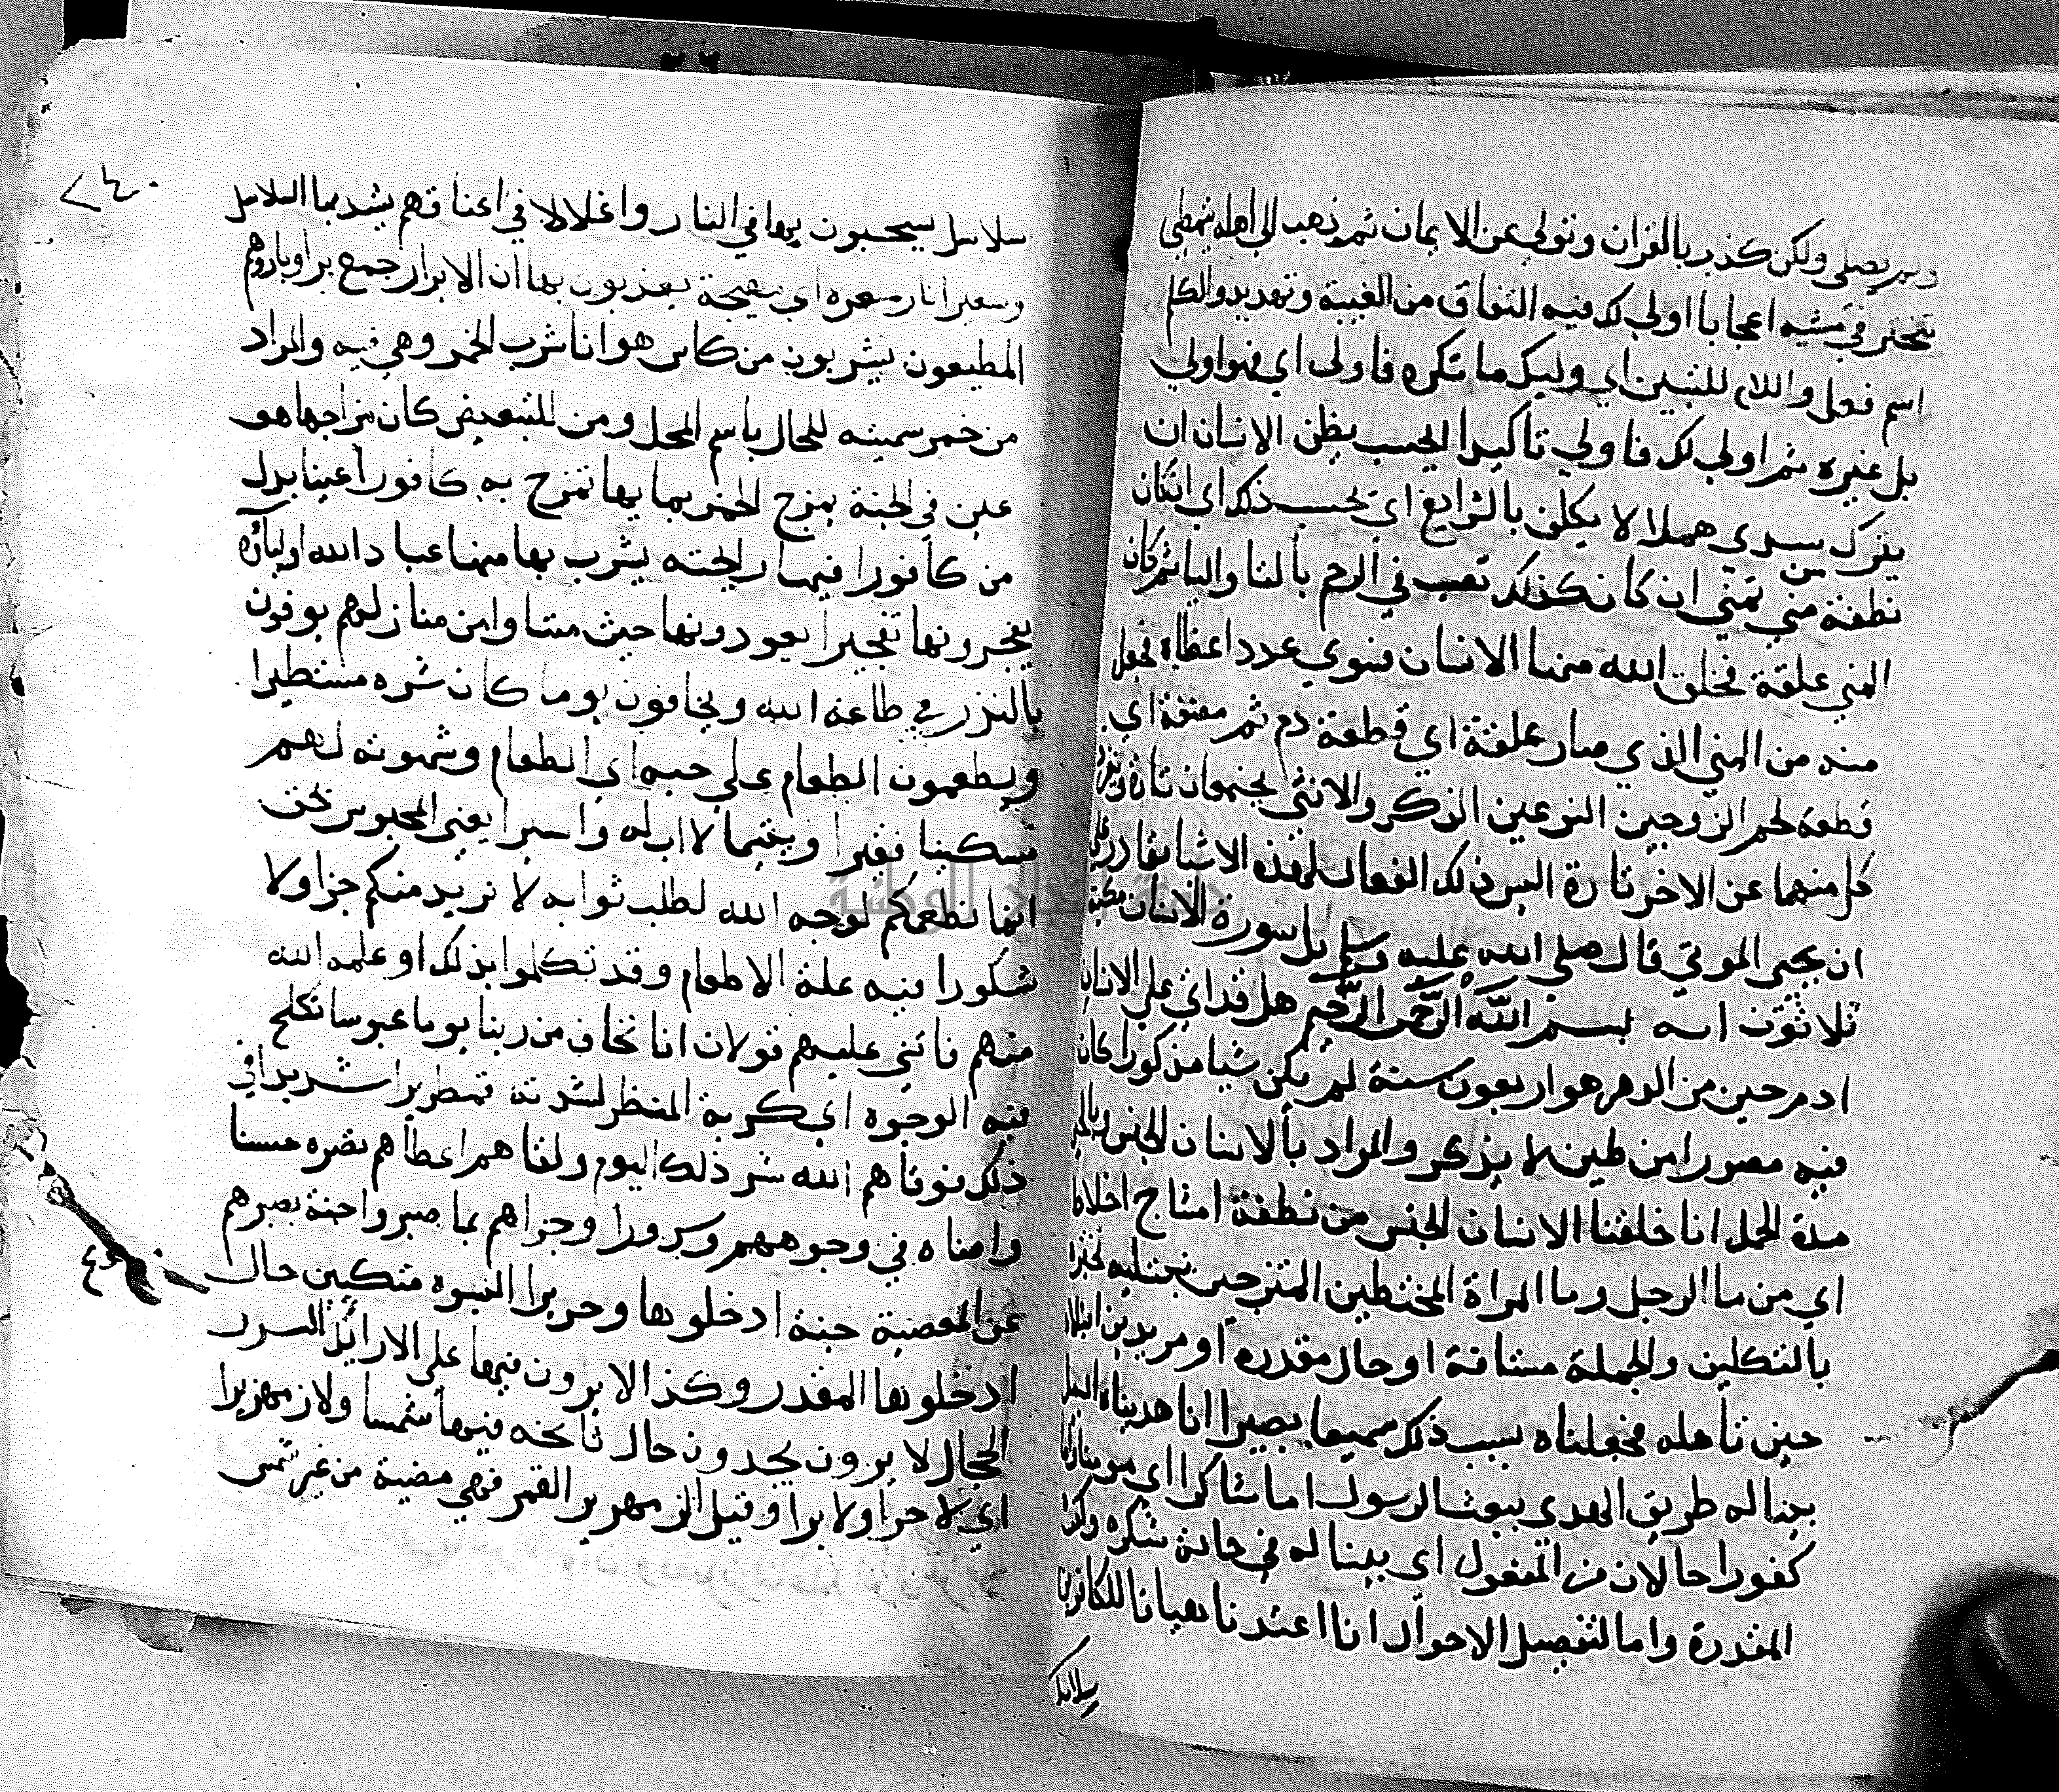 ولم يصلي ولكن كذب بالقران وتولي عن الايمان ثم ذهب الي اهله يتمطي
يتبختر في مشيه اعجابا اولي لك فيه التفات من الغيبة وتهديد والكلم
اسم فعل واللام للتبيين اي وليك ما تكره فاولى اي فهو اولي
بك عن غيره ثم اولي لك فاولي تأكيد ايحسب يظن الانسان ان
يترك سدي هملا لا يكلف بالشرايع اي يحسب ذلك اي اكان
نطفة من مني تمني ان كان كذلك تصب في الرحم بالتا واليا ثم كان
المني علقة فخلق الله منها الانسان فسوي عدد اعظاه فجعل
منه من المني الذي صار علقة اي قطعة دم ثم مضغة اي
قطعة لحم الزوجين النوعين الذكر والانثى يجتمعان تارة وينفرد
كل منهما عن الاخر تارة اليس ذلك الفعال لهذه الاشيا بقادر علي
ان يحيى الموتي قال صلي الله عليه وسلم بلى سورة الانسان مكية
ثلاثون اية بسم الله الرحمن الرحيم هل قد اتي على الانسان
ادم حين من الدهر هو اربعون سنة لم يكن شيا مذكورا كان
فيه مصورا من طين لا يذكر والمراد بالانسان الجنس وبالحين
مدة الحمل انا خلقنا الانسان الجنس من نطفة امشاج اخلاط
اي من ما الرجل وما المراة المختلطين الممتزجين نبتليه نختبره
بالتكليف والجملة مستانفة او حال مقدره او مريدين ابتلاه
حين تأهله فجعلناه بسبب ذلك سميعا بصيرا انا هديناه السبيل
بينا له طريق الهدي ببعث الرسول اما شاكرا اي مومنا واما
كفورا حالان من المفعول اي بينا له في حالة شكره وكفره
المقدرة واما لتفصيل الاحوال انا اعتدنا هيانا للكافرين
سلاسل
سلاسل يسحبون بها في النار واغلالا في اعناقهم يشد بها السلاسل
وسعيرا نار مسعره اي مهيجة يعذبون بها ان الابرار جمع بر او بار وهم
المطيعون يشربون من كاس هو انا شرب الخمر وهي فيه والمراد
من خمر سميته للحال باسم المحل ومن للتبعيض كان مزاجها هو
عين في الجنة يمزج الخمر بما بها تمزج به كافورا عينا بدل
من كافورا فيها ريحته يشرب بها منها عباد الله اولياؤه
يفجرونها تفجيرا يقودونها حيث مشا واين منازلهم يوفون
بالنزر في طاعة الله ويخافون يوما كان شره مستطيرا
ويطعمون الطعام علي حبه اي الطعام وشهوته لهم
مسكينا فقيرا ويتيما لا اب له واسيرا يعني المحبوس بحق
انما نطعمكم لوجه الله لطلب ثوابه لا نريد منكم جزا ولا
شكورا فيه علة الاطعام وقد تكلموا بذلك او علمه الله
منهم فاثني عليهم قولان انا نخاف من ربنا يوما عبوسا تكلح
فيه الوجوه اي كرية المنظر لشدته قمطريرا شديدا في
ذلك فوقاهم الله شر ذلك اليوم ولقاهم اعطاهم نضره حسنا
واضاه في وجوههم وسرورا وجزاهم بما صبروا جنة بصبرهم
عن المعصية جنة ادخلوها وحريرا البسوه متكيين حال
ادخلوها المقدر وكذا لا يرون فيها على الارائك السرر
الحجال لا يرون يجدون حال ثانيه فيها شمسا ولا زمهريرا
اي لا حرا ولا بردا وقيل الزمهرير القمر فهي مضية من غير شمس